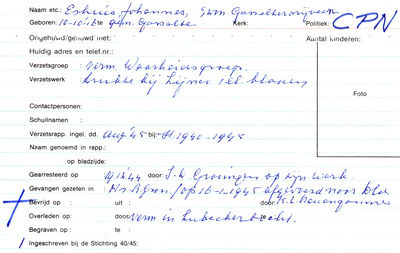 Naam etc: Eshuis Johannes, Gem Gasselternijveen
Geboren: 10-10-16 te Gem. Gasselte Kerk: Politiek: CPN
Ongehuwd/gehuwd met: Aantal kinderen:
Huidig adres en telef.nr.:
Verzetsgroep : verm. Waarheidsgroep.
Verzetswerk : drukte bij Lijner ill. bladen
Foto
Contactpersonen:
Schuilnaam :
Verzetsrapp. ingel. dd. aug '45 bij: St. 1940-1945
Naam genoemd in rapp.:
op bladzijde:
Gearresteerd op 44 door: op zijn werk
Gevangen gezeten in : H.v.B. Gron./op 16-1-1945 afgevoerd naar
Bevrijd op : uit : door: K.L. Neuengamme
Overleden op: door verm in Lubecker bocht.
Begraven op : te :
Ingeschreven bij de Stichting 40/45: